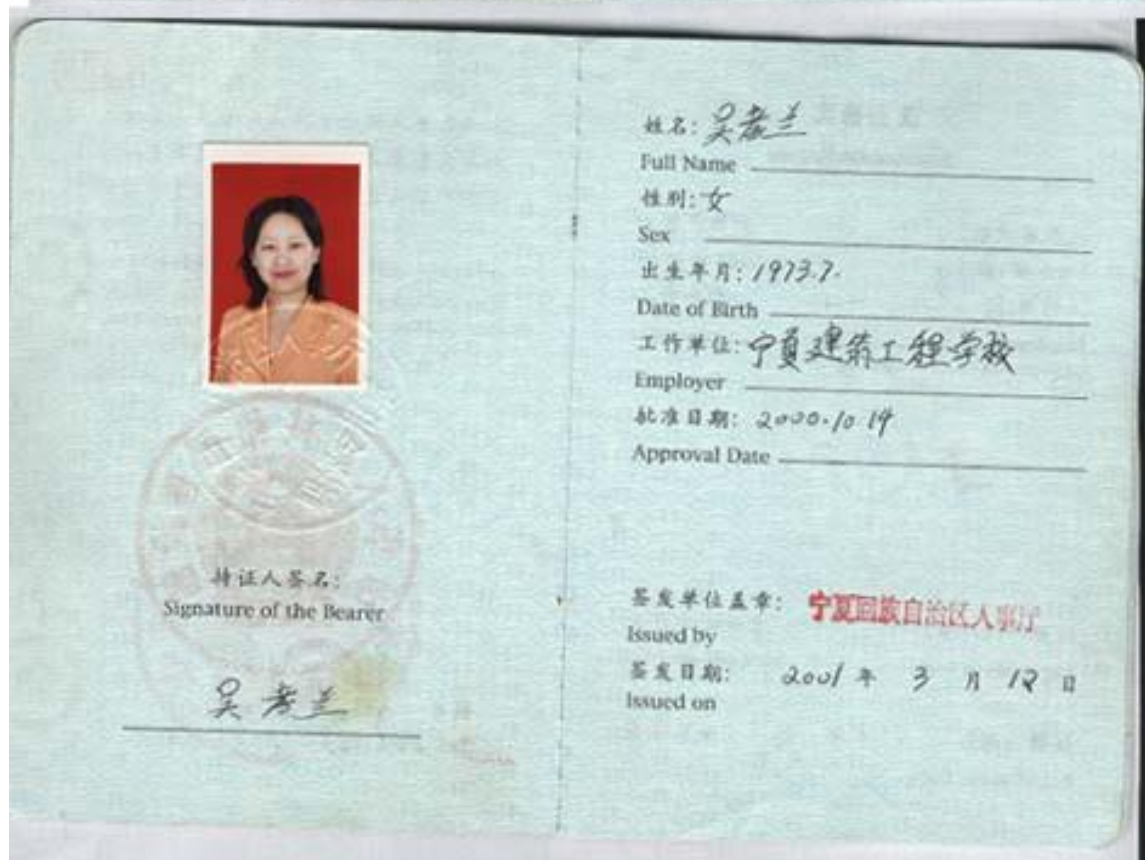 持证人签名:
Signature of the Bearer
姓名:
Full Name
性别: 女
Sex
出生年月: 1973.7.
Date of Birth
工作单位: 宁夏建筑工程学校
Employer
批准日期: 2000.10.14
Approval Date
签发单位盖章: 宁夏回族自治区人事厅
Issued by
签发日期: 2001 年 3 月 12 日
Issued on